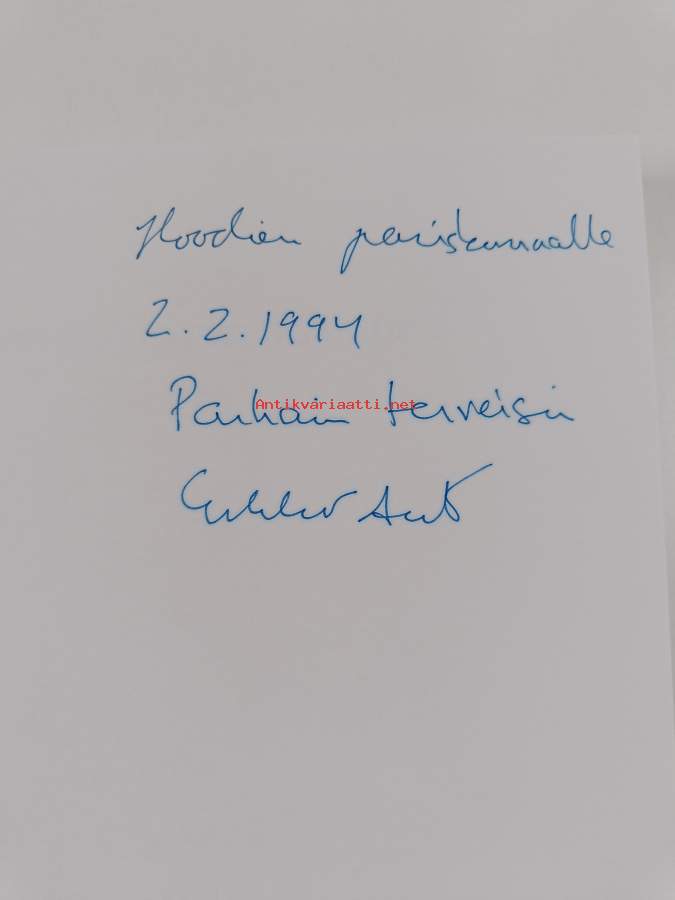 Hoodien pariskunnalle
2.2.1994
Parhain terveisin
Antikvariaatti.net